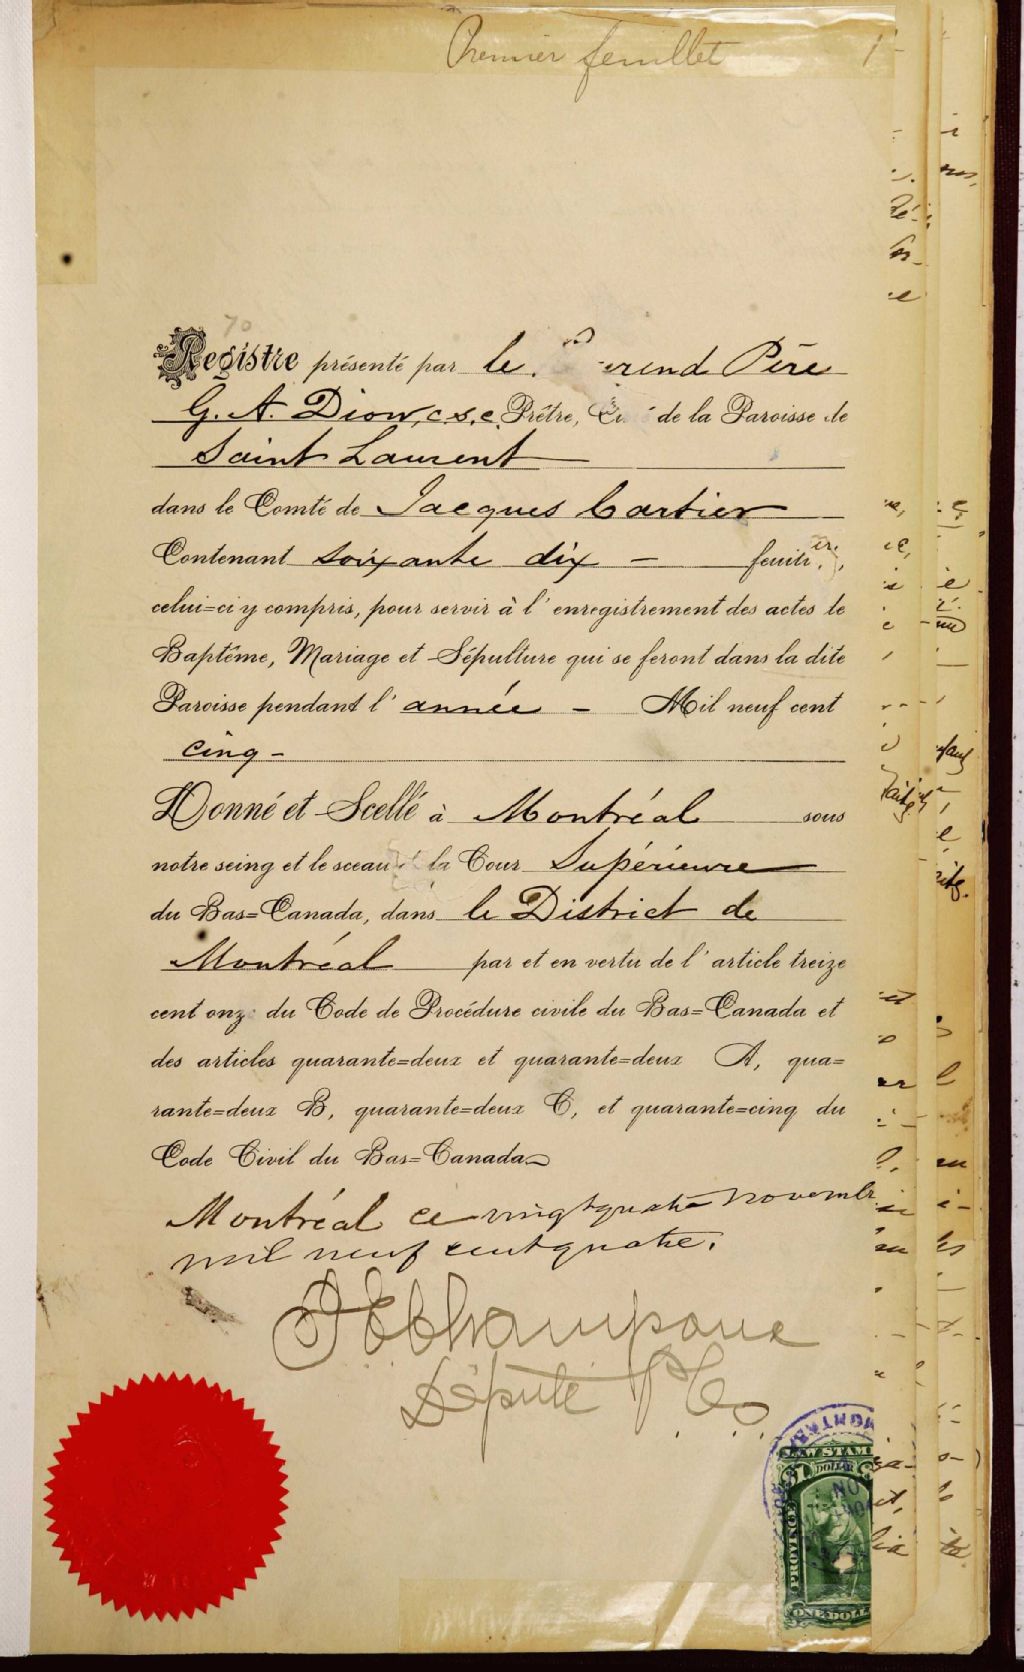 Premier feuillet 1
70
Registre présenté par le erend Père
G. A. Dion, c.s.c. Prêtre, Curé de la Paroisse de
Saint Laurent
dans le Comté de Jacques Cartier
Contenant soixante dix feuill
celui=ci y compris, pour servir à l'enregistrement des actes de
Baptême, Mariage et Sépulture qui se feront dans la dite
Paroisse pendant l'année - Mil neuf cent
cinq -
Donné et Scellé à Montréal sous
notre seing et le sceau de la Cour Supérieure
du Bas=Canada, dans le District de
Montréal par et en vertu de l'article treize
cent onz du Code de Procédure civile du Bas=Canada et
des articles quarante=deux et quarante=deux A, qua=
rante=deux B, quarante=deux C, et quarante=cinq du
Code Civil du Bas=Canada
Montréal ce vingtquatre novembr
mil neuf centquatre.
Député P.C.S.
MONTREA
LAW STAM
$1 DOLLAR
NO
PROVINCE
ONE DOLL